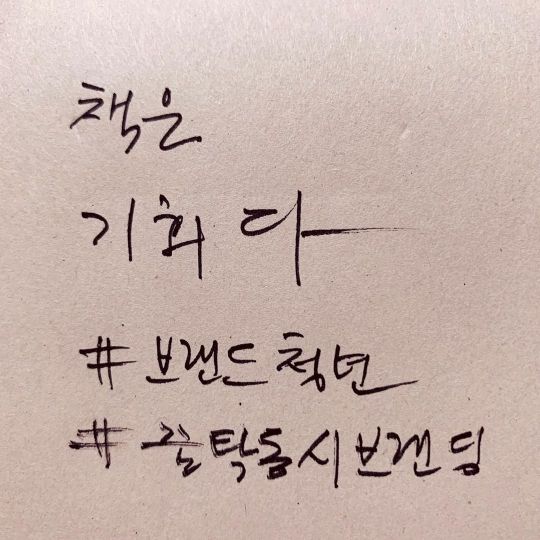 책은
기회다
#브랜드청년
#줄탁동시브랜딩